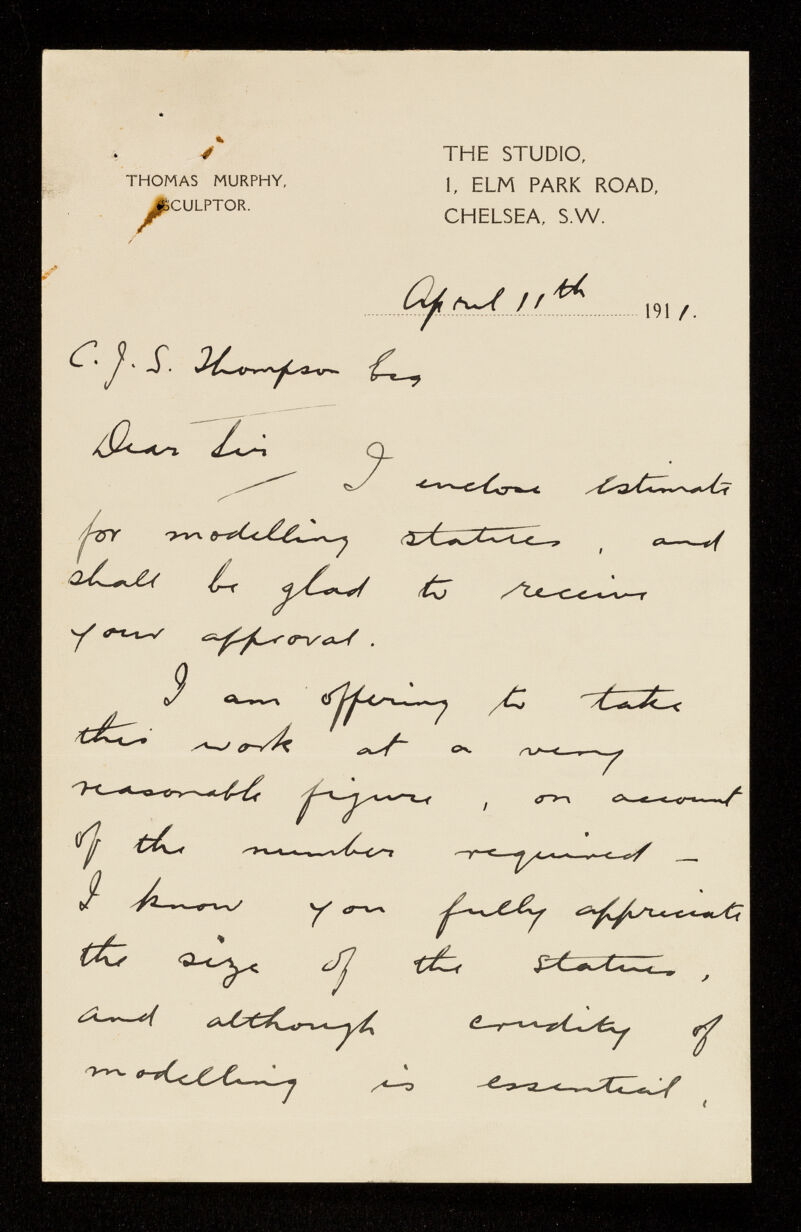 THOMAS MURPHY,
SCULPTOR.
THE STUDIO,
1, ELM PARK ROAD,
CHELSEA, S.W.
April 11th 1911.
C. J. S. Thompson Esq
Dear Sir
I enclose estimate
for modelling statues, and
shall be glad to receive
your approval.
I am offering to take
this work at a very
reasonable figure, on account
of the number required —
I know you fully appreciate
the size of the statues,
and although crudity of
modelling is essential,